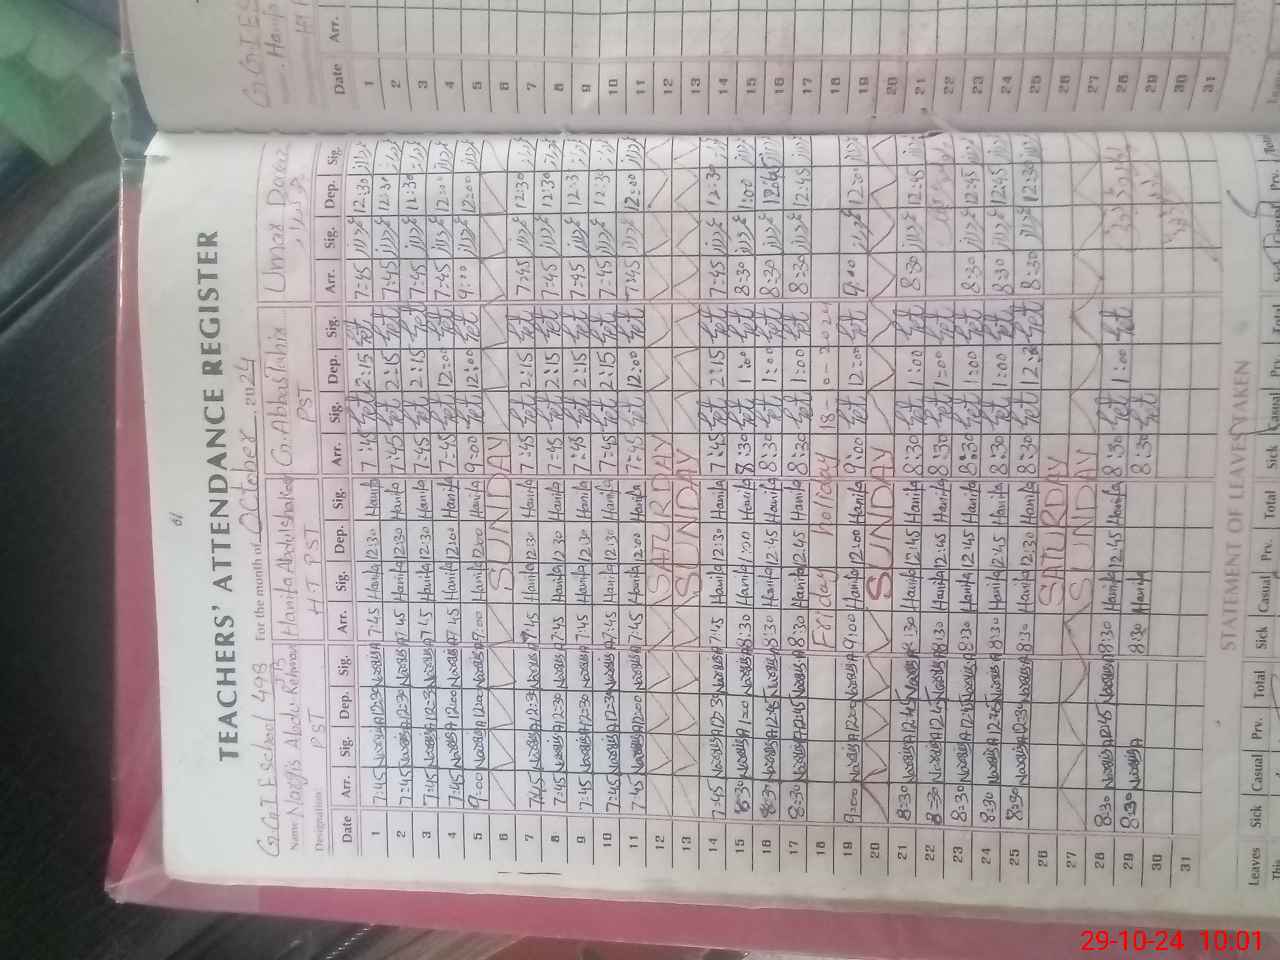 TEACHERS' ATTENDANCE REGISTER
G.G.T.E School 493 For the month of October 2024
Name Nargis Abdul Rehman Hanifa Abdulshakoor G. Abbas Umar Daraz
Designation PST H.T PST PST
Date Arr. Sig. Dep. Sig. Arr. Sig. Dep. Sig. Arr. Sig. Dep. Sig. Arr. Sig. Dep. Sig.
1 7:45 Nargis A 12:30 Nargis A 7:45 Hanifa 12:30 Hanifa 7:45 2:15 7:45 12:30
2 7:45 Nargis A 12:30 Nargis A 7:45 Hanifa 12:30 Hanifa 7:45 2:15 7:45 12:30
3 7:45 Nargis A 12:30 Nargis A 7:45 Hanifa 12:30 Hanifa 7:45 2:15 7:45 12:30
4 7:45 Nargis A 12:00 Nargis A 7:45 Hanifa 12:00 Hanifa 7:45 12:00 7:45 12:00
5 9:00 Nargis A 12:00 Nargis A 9:00 Hanifa 12:00 Hanifa 9:00 12:00 9:00 12:00
6 SUNDAY
7 7:45 Nargis A 12:30 Nargis A 7:45 Hanifa 12:30 Hanifa 7:45 2:15 7:45 12:30
8 7:45 Nargis A 12:30 Nargis A 7:45 Hanifa 12:30 Hanifa 7:45 2:15 7:45 12:30
9 7:45 Nargis A 12:30 Nargis A 7:45 Hanifa 12:30 Hanifa 7:45 2:15 7:45 12:3
10 7:45 Nargis A 12:30 Nargis A 7:45 Hanifa 12:30 Hanifa 7:45 2:15 7:45 12:3
11 7:45 Nargis A 12:00 Nargis A 7:45 Hanifa 12:00 Hanifa 7:45 12:00 7:45 12:00
12 SATURDAY
13 SUNDAY
14 7:45 Nargis A 12:30 Nargis A 7:45 Hanifa 12:30 Hanifa 7:45 2:15 7:45 12:30
15 8:30 Nargis A 1:00 Nargis A 8:30 Hanifa 1:00 Hanifa 8:30 1:00 8:30 1:00
16 8:30 Nargis A 12:45 Nargis A 8:30 Hanifa 12:45 Hanifa 8:30 1:00 8:30 12:45
17 8:30 Nargis A 12:45 Nargis A 8:30 Hanifa 12:45 Hanifa 8:30 1:00 8:30 12:45
18 Friday holiday 18-10-2024
19 9:00 Nargis A 12:00 Nargis A 9:00 Hanifa 12:00 Hanifa 9:00 12:00 9:00 12:00
20 SUNDAY
21 8:30 Nargis A 12:45 Nargis A 8:30 Hanifa 12:45 Hanifa 8:30 1:00 8:30 12:45
22 8:30 Nargis A 12:45 Nargis A 8:30 Hanifa 12:45 Hanifa 8:30 1:00
23 8:30 Nargis A 12:45 Nargis A 8:30 Hanifa 12:45 Hanifa 8:30 1:00 8:30 12:45
24 8:30 Nargis A 12:45 Nargis A 8:30 Hanifa 12:45 Hanifa 8:30 1:00 8:30 12:45
25 8:30 Nargis A 12:30 Nargis A 8:30 Hanifa 12:30 Hanifa 8:30 8:30 12:30
26 SATURDAY
27 SUNDAY
28 8:30 Nargis A 12:45 Nargis A 8:30 Hanifa 12:45 Hanifa 8:30 1:00
29 8:30 Nargis A 8:30 Hanifa 8:30
30
31
STATEMENT OF LEAVES TAKEN
Leaves Sick Casual Prv. Total Sick Casual Prv. Total Sick Casual Prv. Total Casual Prv. Total
This
G.G.T.E.S
Hanifa
Date Arr.
1
2
3
4
5
6
7
8
9
10
11
12
13
14
15
16
17
18
19
20
21
22
23
24
25
26
27
28
29
30
31
29-10-24 10.01